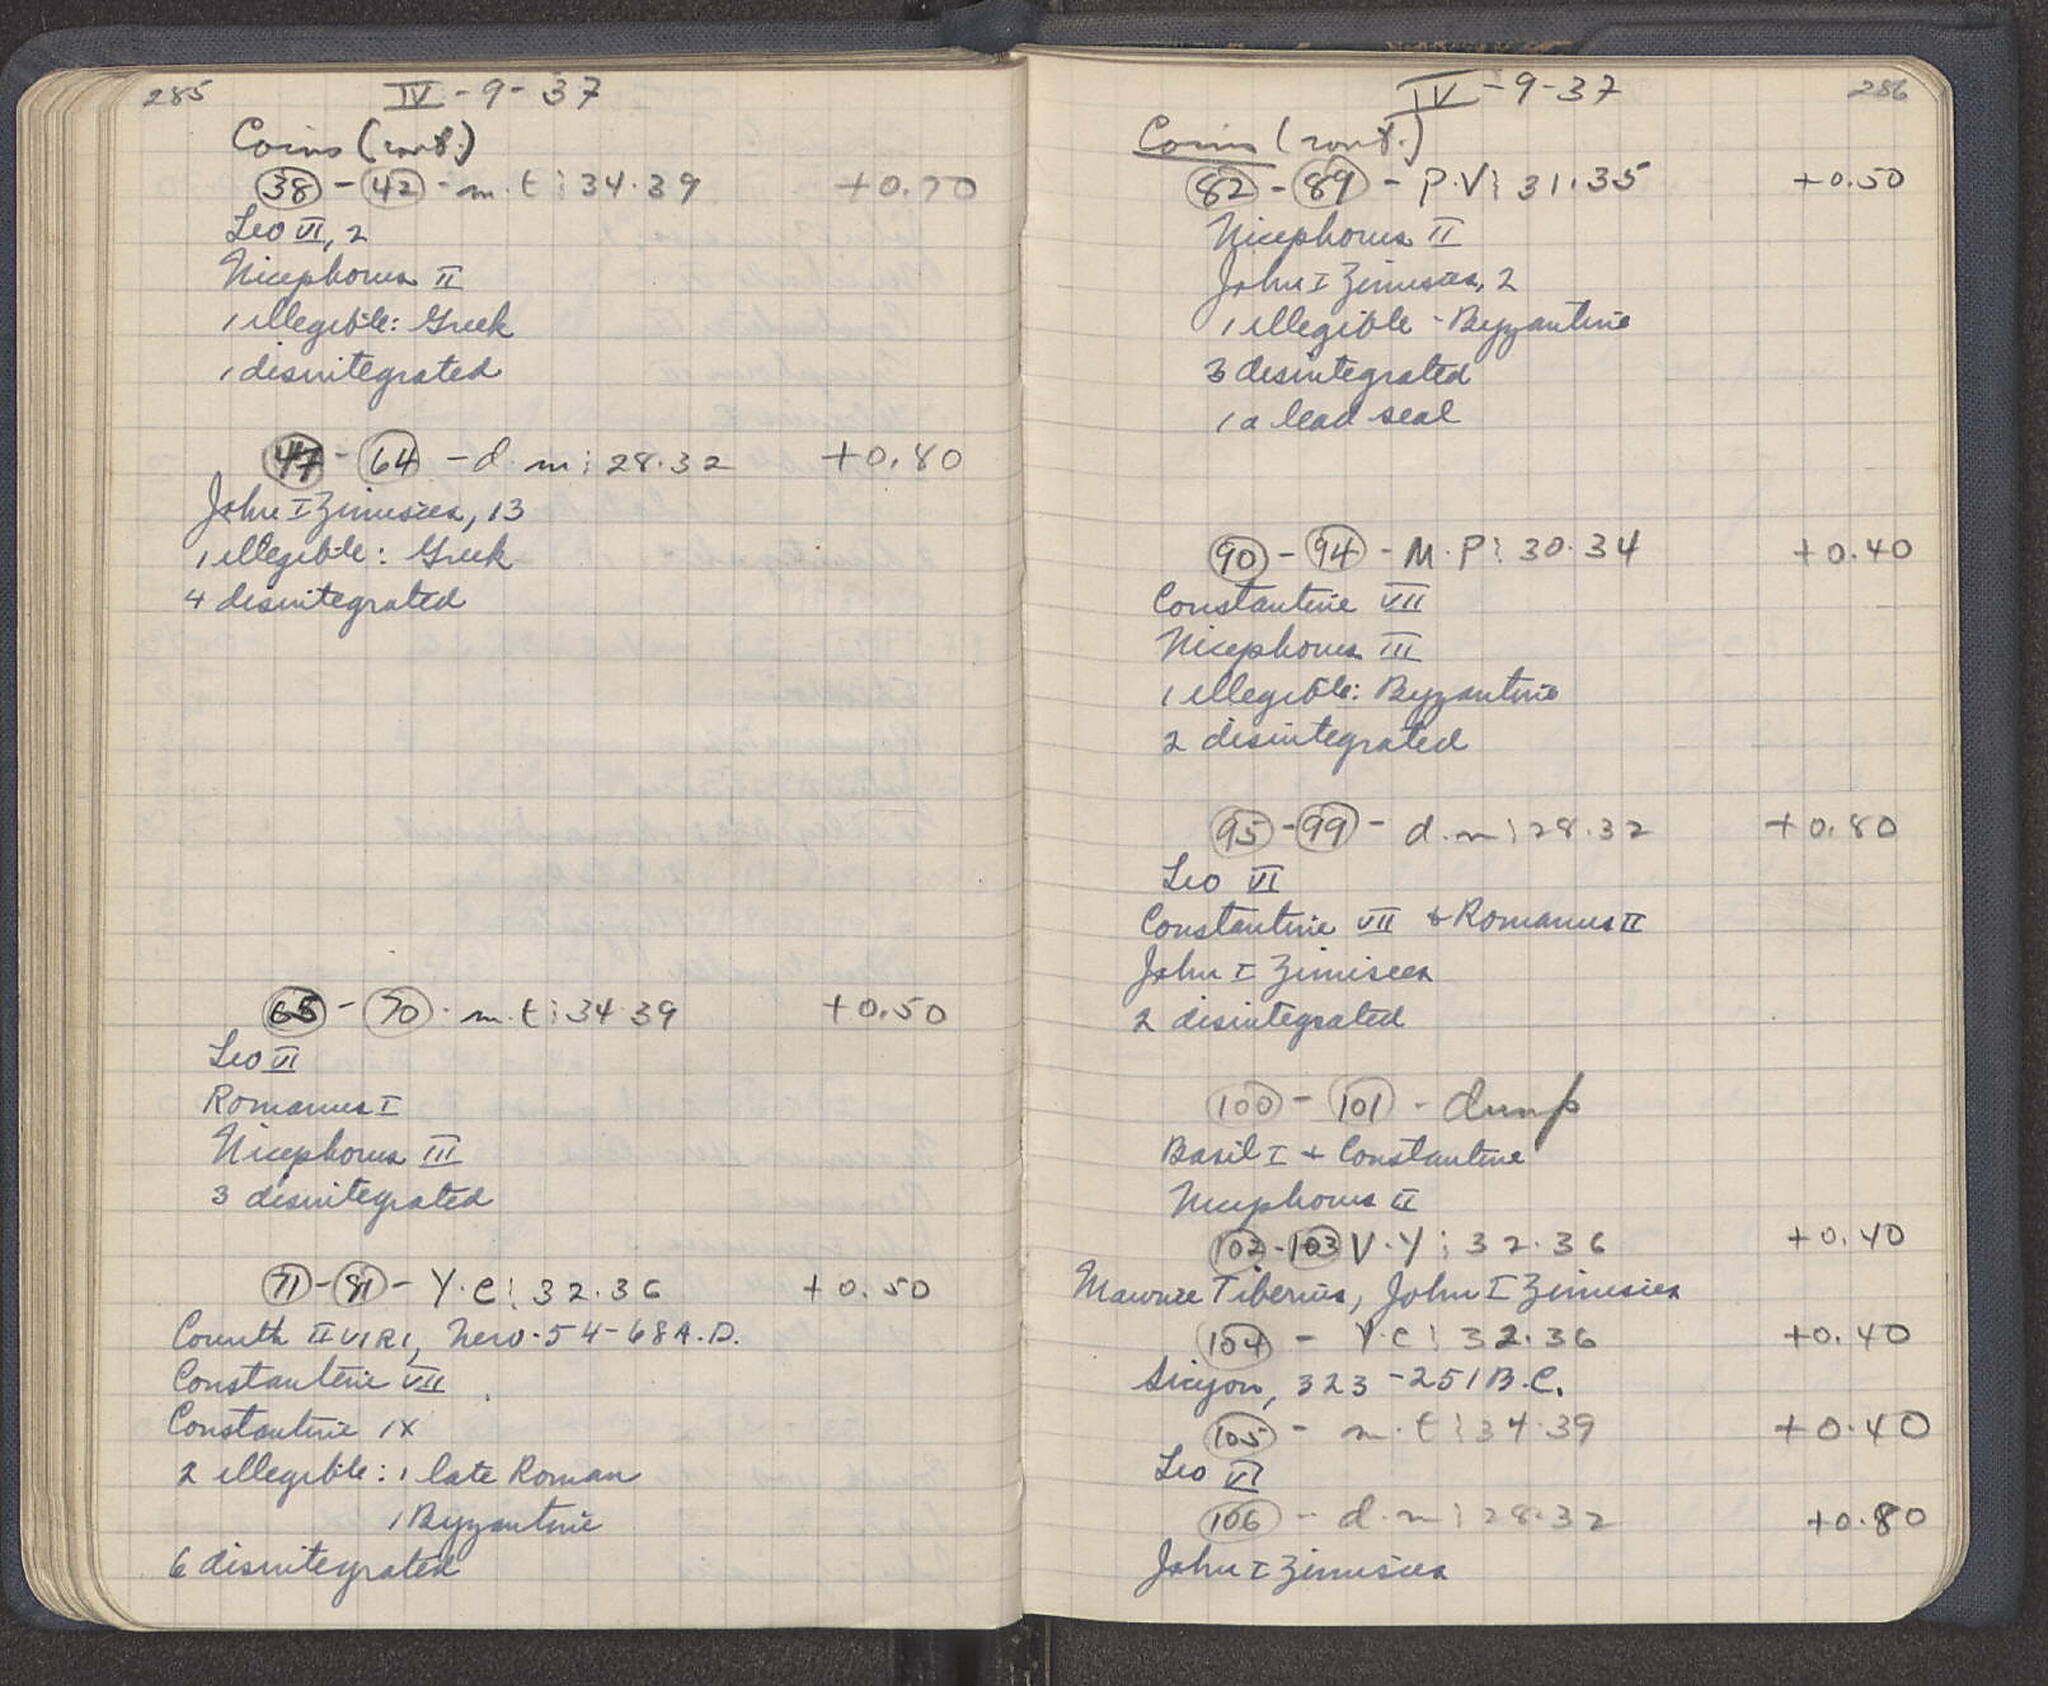 285 IV-9-37
Coins (cont.)
38 - 42 - m.t: 34.39 +0.70
Leo VI, 2
Nicephorus II
1 illegible: Greek
1 disintegrated
47 - 64 - d.m: 28.32 +0.80
John I Zimisces, 13
1 illegible: Greek
4 disintegrated
65 - 70 - m.t: 34.39 +0.50
Leo VI
Romanus I
Nicephorus III
3 disintegrated
71 - 81 - Y.C: 32.36 +0.50
Corinth IIVIRI, Nero - 54-68 A.D.
Constantine VII
Constantine IX
2 illegible: 1 late Roman
1 Byzantine
6 disintegrated
IV-9-37 286
Coins (cont.)
82 - 89 - P.V: 31.35 +0.50
Nicephorus II
John I Zimisces, 2
1 illegible - Byzantine
3 disintegrated
1 a lead seal
90 - 94 - M.P: 30.34 +0.40
Constantine VII
Nicephorus III
1 illegible: Byzantine
2 disintegrated
95 - 99 - d.m: 28.32 +0.80
Leo VI
Constantine VII & Romanus II
John I Zimisces
2 disintegrated
100 - 101 - dump
Basil I + Constantine
Nicephorus II
102 - 103 V.Y: 32.36 +0.40
Maurice Tiberius, John I Zimisces
104 - Y.C: 32.36 +0.40
Sicyon, 323-251 B.C.
105 - m.t: 34.39 +0.40
Leo VI
106 - d.m: 28.32 +0.80
John I Zimisces